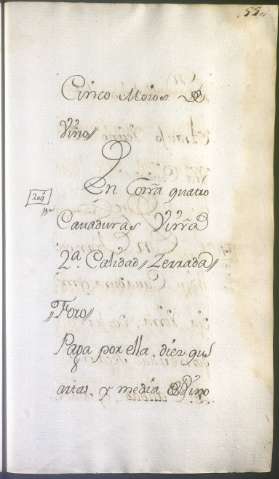 55
Cinco Moios de
Vino
En Corra quatro
Cauaduras Viñã
2ª. Calidad Zerrada
Foro
Paga por ella, diez qu
artas y media de Vino